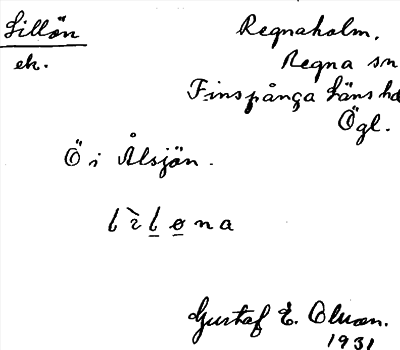 Lillön
ek.
Regnaholm.
Regna sn
Finspånga läns hd
Ögl.
Ö i Ålsjön.
Gustaf E. Olson.
1931